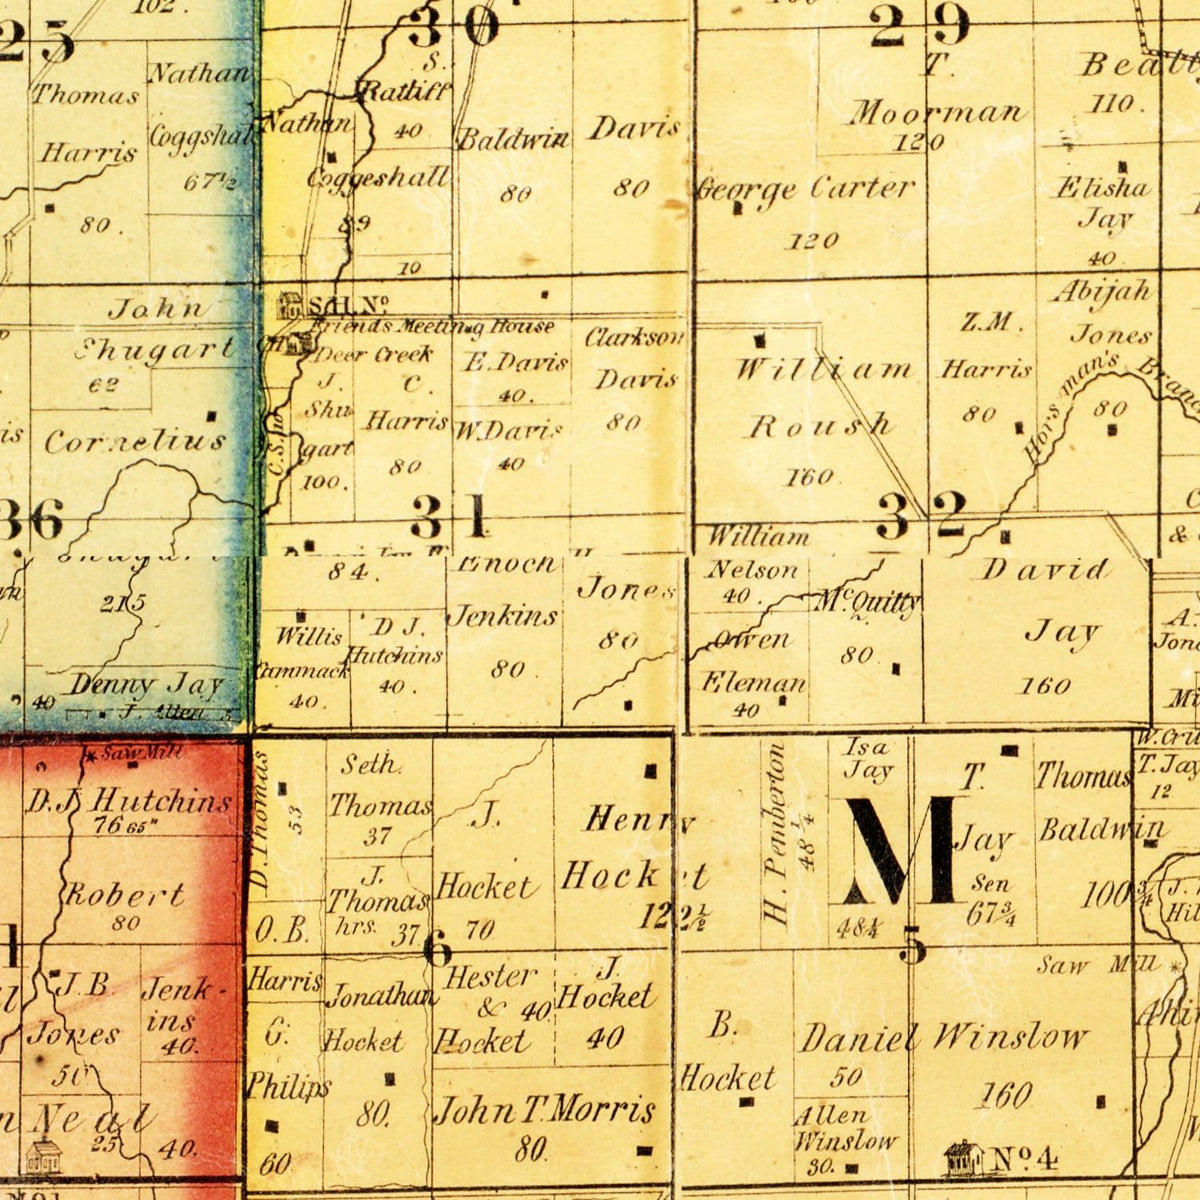 102.
25
Thomas
Harris
80.
Nathan
Coggshal
67 1/2
30
S.
Ratliff
40
Nathan
Coggeshall
89
10
Baldwin
80
Davis
80
29
T.
Moorman
120
George Carter
120
Beatt
110.
Elisha
Jay
40
John
Shugart
62
Cornelius
36
215
40
Denny Jay
J. Allen 5
S.H. No
Friends Meeting House
Deer Creek
J.
Shu
gart
100.
C.
Harris
80
E. Davis
40.
W. Davis
40
Clarkson
Davis
80
31
William
Roush
160
32
Z.M.
Harris
80
Abijah
Jones
80
Horsman's Branc
84.
Willis
Cammack
40.
D J.
Hutchins
40.
Enoch
Jenkins
80
Jones
80
William
Nelson
40.
Owen
Eleman
40
McQuitty
80
David
Jay
160
A.
Jone
Saw Mill
D.J. Hutchins
76 65"
Robert
80
J.B.
Jones
50
Jenk-
ins
40.
Neal
25
40.
D. Thomas
53
Seth.
Thomas
37
J.
Thomas
hrs. 37
O.B.
Harris
C.
Philips
60
6
J.
Hocket
70
Henry
Hocket
122 1/2
Jonathan
Hocket
80.
Hester
& 40
Hocket
J.
Hocket
40
John T. Morris
80.
H. Pemberton
48 1/4
Isa
Jay
M
48 1/4
T.
Jay
Sen
67 3/4
Thomas
Baldwin
100 3/4
W. Crit
T. Jay
12
J.
Hil
5
Saw Mill
B.
Hocket
Daniel Winslow
50
160
Allen
Winslow
30.
No. 4